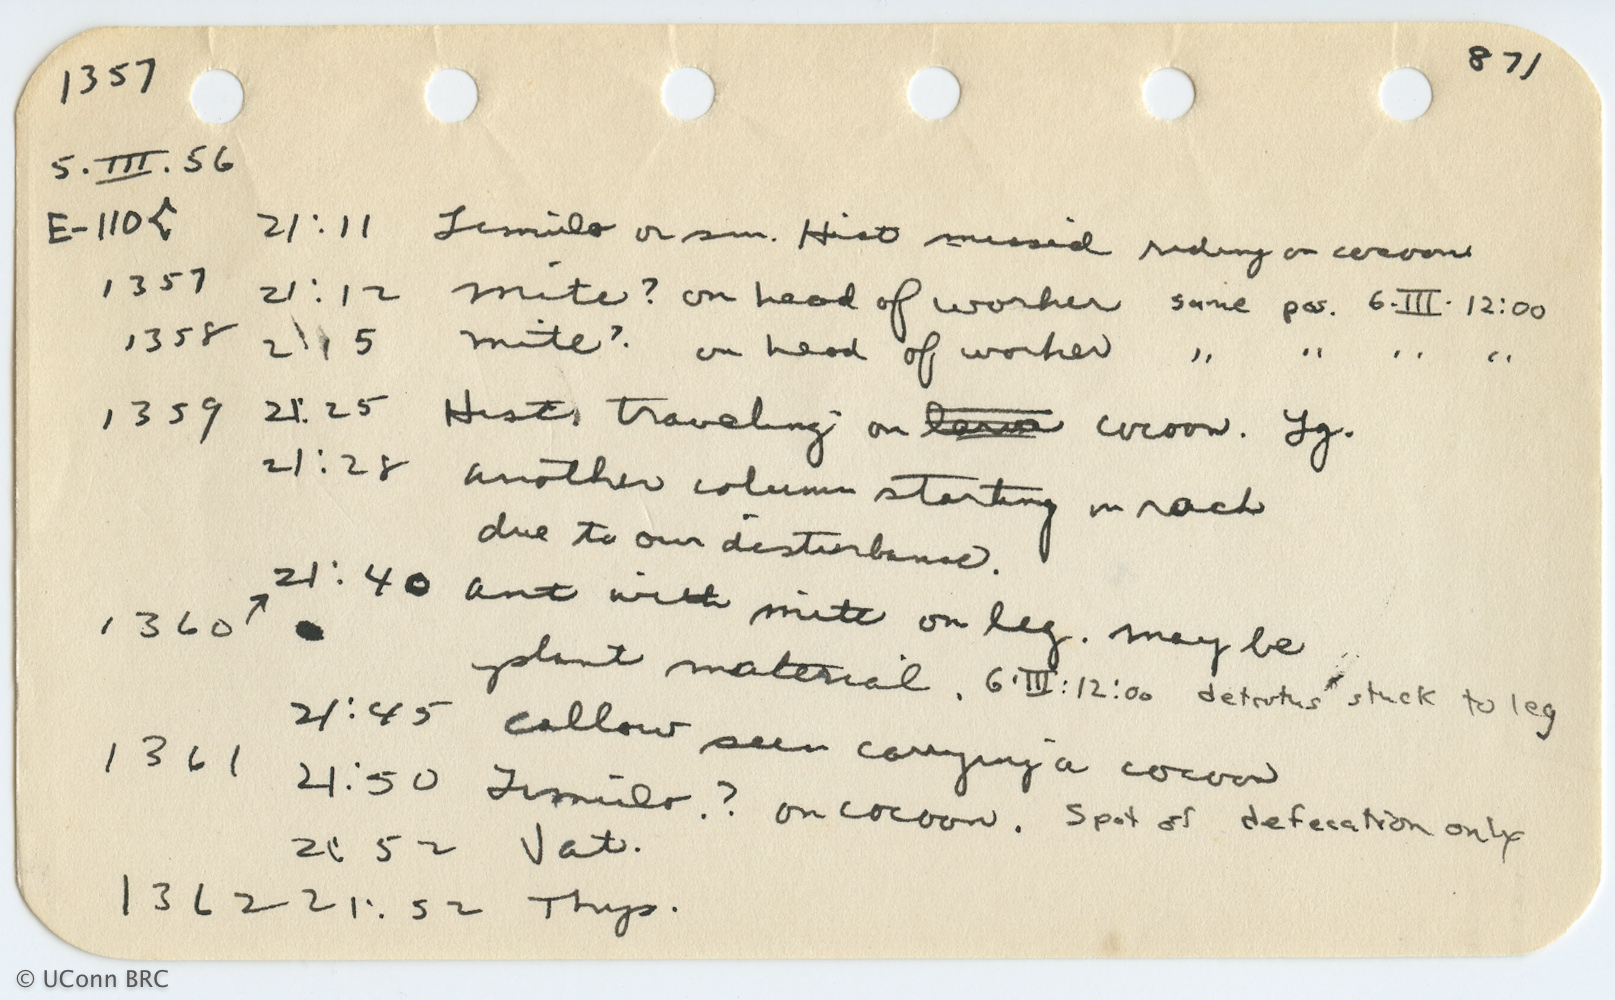 1357
871
5.III.56
E-110 21:11 Limulo or sm. Hist missed riding on cocoon
1357 21:12 mite? on head of worker same pos. 6.III.12:00
1358 21:15 mite? on head of worker " " " "
1359 21:25 Hist. traveling on larva cocoon. Lg.
21:28 another column starting in rach
due to our disturbance.
21:40 ant with mite on leg. may be
1360
plant material. 6.III:12:00 detritus stuck to leg
21:45 callow seen carrying a cocoon
1361 21:50 Limulo.? on cocoon. Spot of defecation only
21:52 Vat.
1362 21:52 Thys.
© UConn BRC